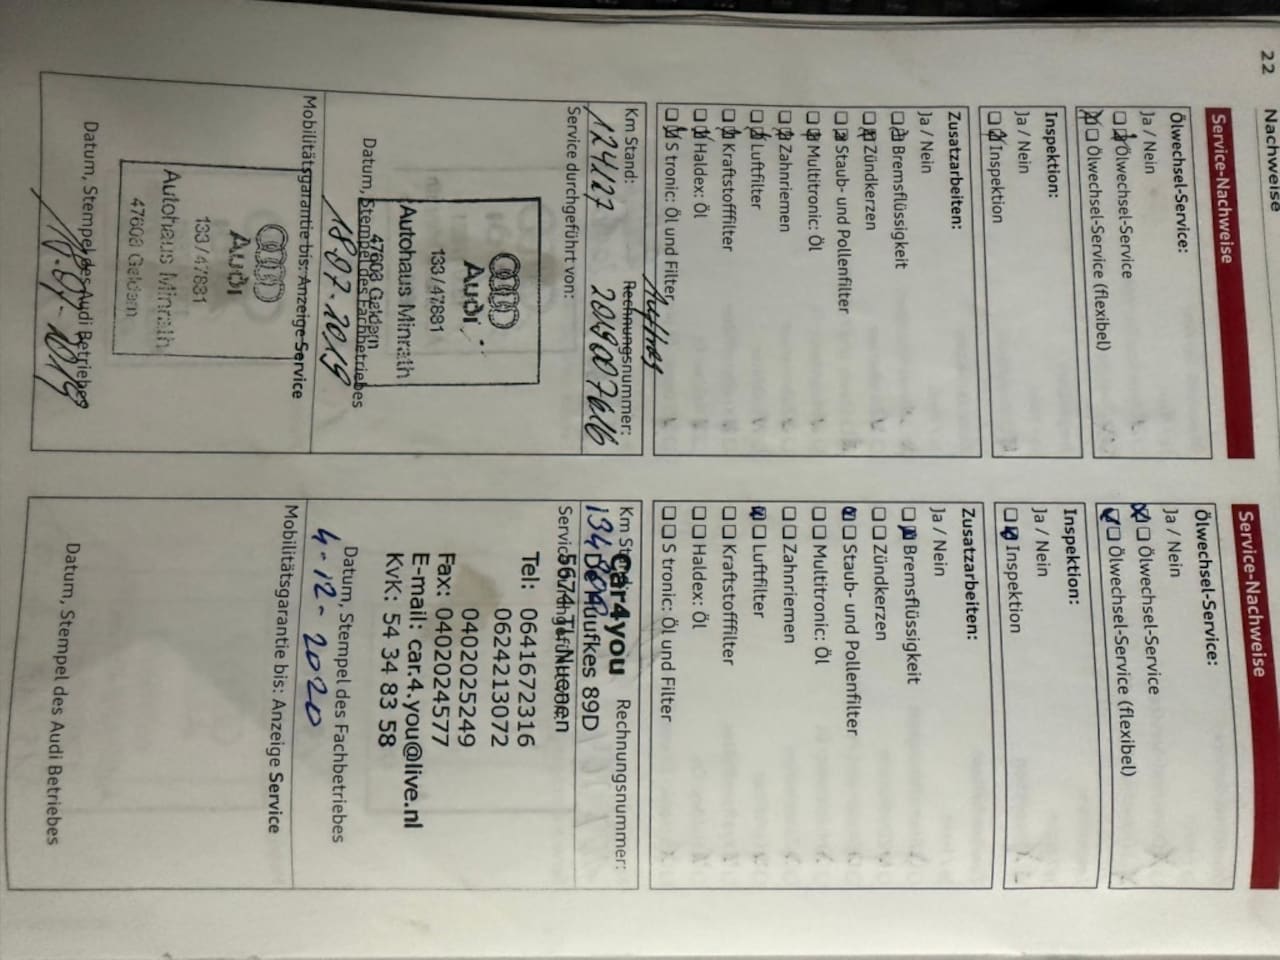 22 Nachweise
Service-Nachweise
Ölwechsel-Service:
Ja / Nein
Ölwechsel-Service
Ölwechsel-Service (flexibel)
Inspektion:
Ja / Nein
Inspektion
Zusatzarbeiten:
Ja / Nein
Bremsflüssigkeit
Zündkerzen
Staub- und Pollenfilter
Multitronic: Öl
Zahnriemen
Luftfilter
Kraftstofffilter
Haldex: Öl
S tronic: Öl und Filter
Km Stand:
Rechnungsnummer:
Service durchgeführt von:
Audi
133/47831
Autohaus Minrath
47608 Geldern
Datum, Stempel des Fachbetriebes
18.07.2019
Mobilitätsgarantie bis: Anzeige Service
Audi
133/47831
Autohaus Minrath
47608 Geldern
Datum, Stempel des Audi Betriebes
Service-Nachweise
Ölwechsel-Service:
Ja / Nein
Ölwechsel-Service
Ölwechsel-Service (flexibel)
Inspektion:
Ja / Nein
Inspektion
Zusatzarbeiten:
Ja / Nein
Bremsflüssigkeit
Zündkerzen
Staub- und Pollenfilter
Multitronic: Öl
Zahnriemen
Luftfilter
Kraftstofffilter
Haldex: Öl
S tronic: Öl und Filter
Km Stand:
Rechnungsnummer:
Car4you
De Huufkes 89D
5674 TL Nuenen
Tel: 0641672316
0624213072
0402025249
Fax: 0402024577
E-mail: car.4.you@live.nl
KvK: 54 34 83 58
Datum, Stempel des Fachbetriebes
4-12-2020
Mobilitätsgarantie bis: Anzeige Service
Datum, Stempel des Audi Betriebes